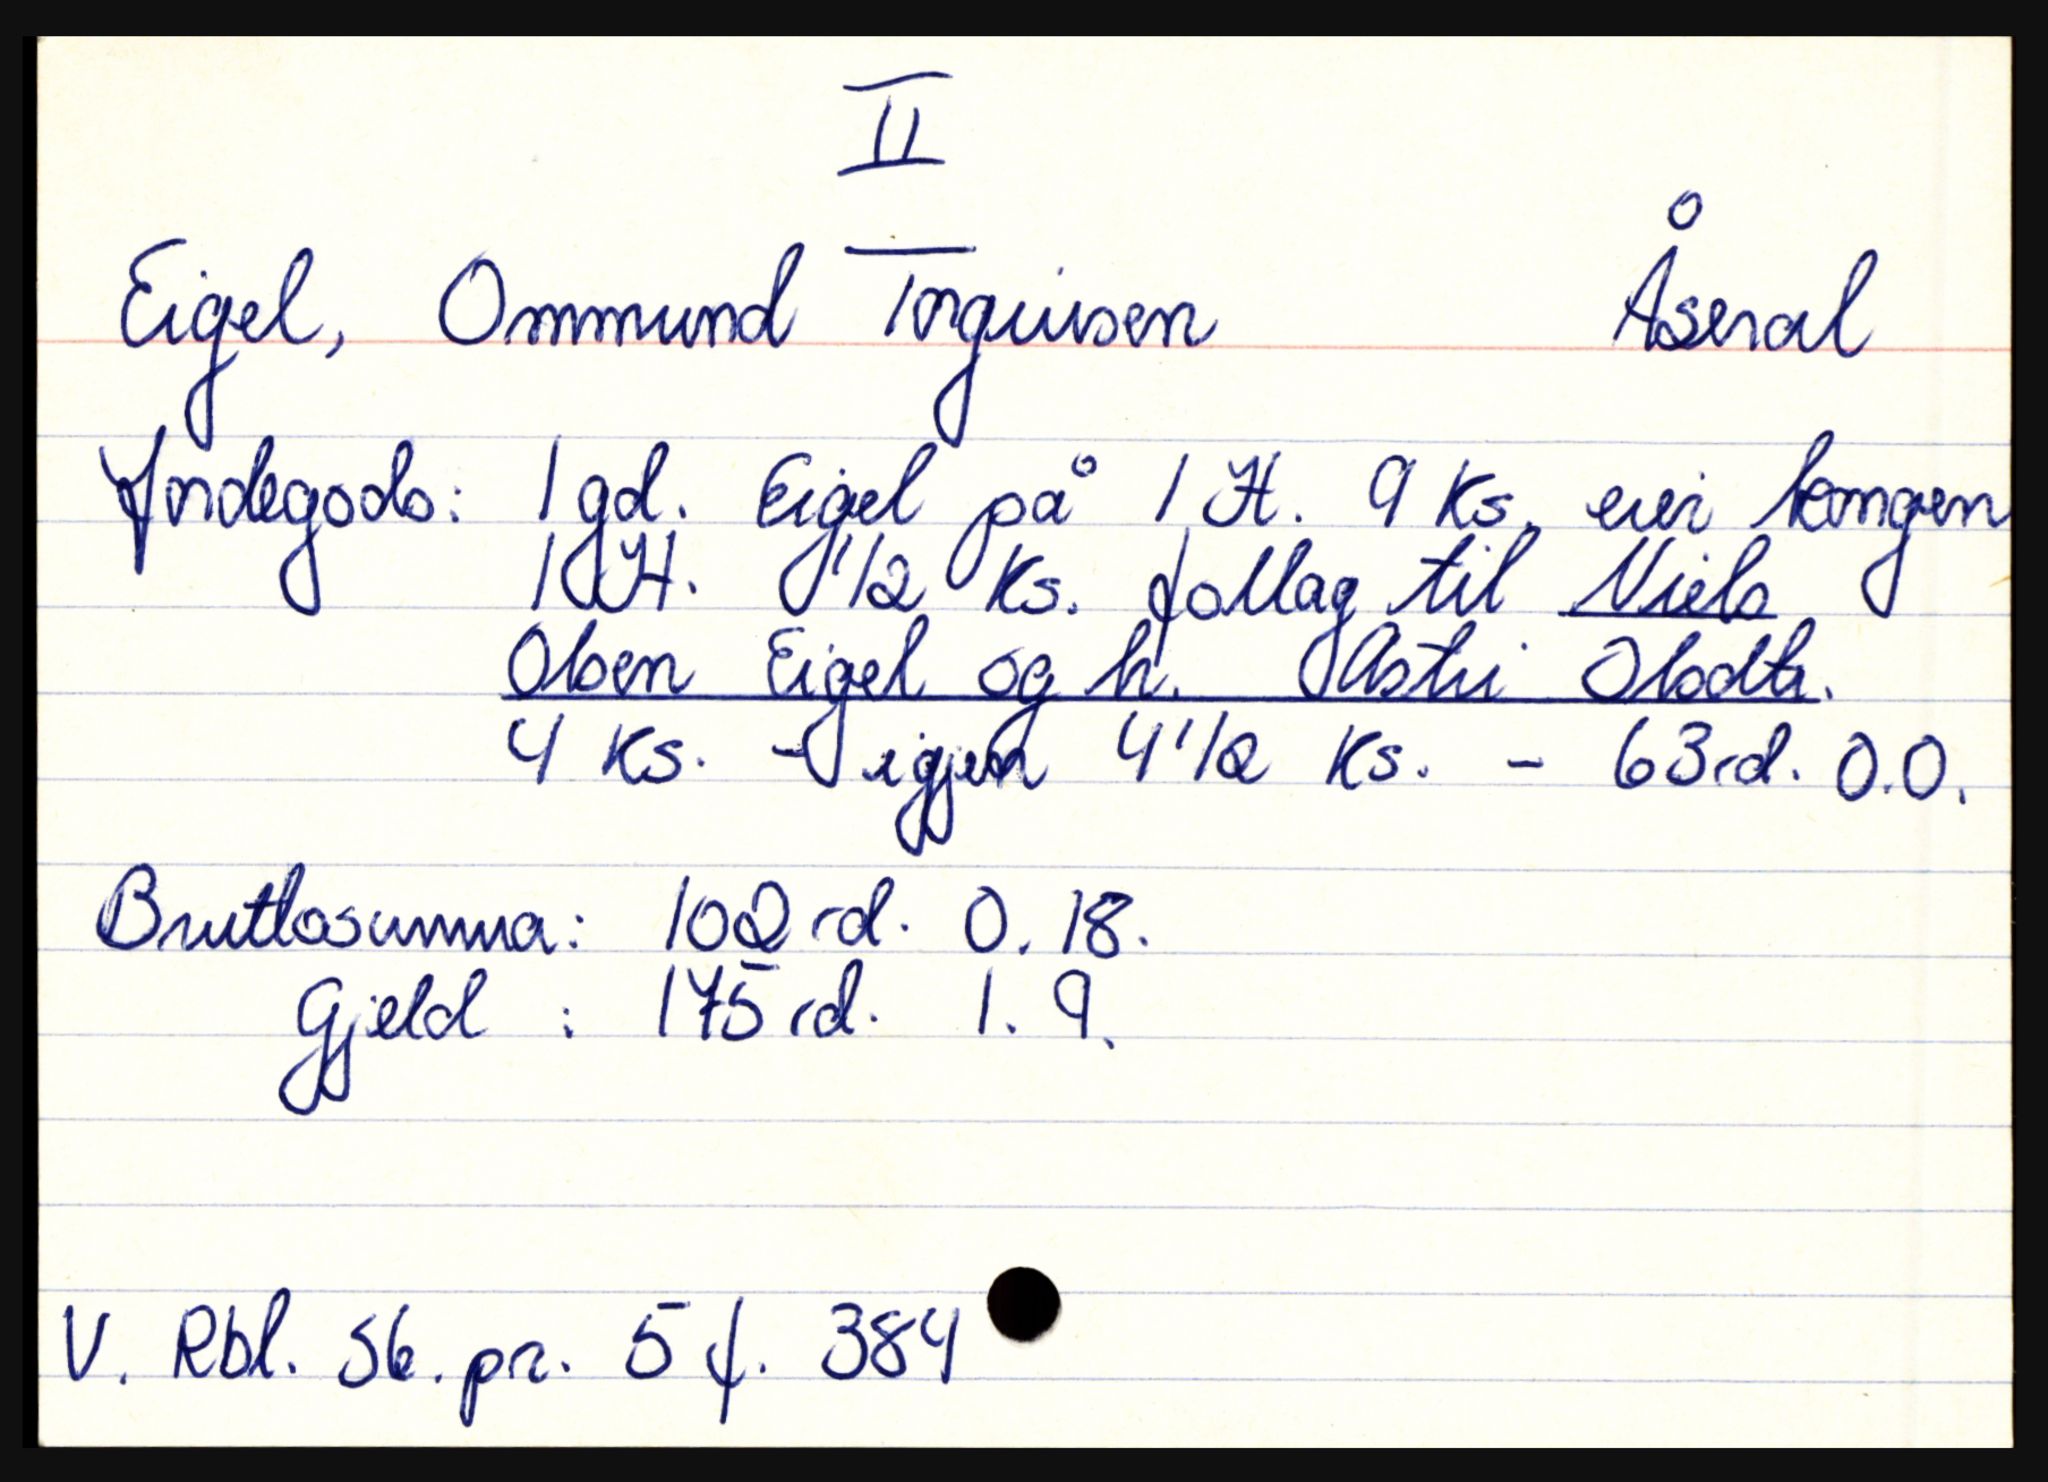 II
Eigel, Ommund Torguivsen Åseral
Jordegods: 1 gd. Eigel på 1 H. 9 Ks. eier kongen
1 H. 1/2 Ks. follag til Niels
Olsen Eigel og h. Astri Olsdtr.
4 Ks. - igjen 4 1/2 Ks. - 63 rd. 0.0.
Bruttosumma: 102 rd. 0. 18.
Gjeld : 175 rd. 1. 9.
V. Rbl. Sk. pr. 5 f. 384